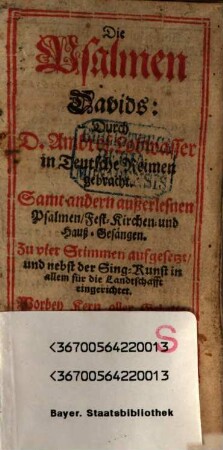 Die
Psalmen
Davids:
Durch
D. Ambros. Lobwasser
in Teutsche Reimen
gebracht.
Samt andern außerlesnen
Psalmen/Fest-Kirchen-und
Hauß-Gesängen.
Zu vier Stimmen aufgesetzt/
und nebst der Sing-Kunst in
allem für die Landtschafft
eingerichtet.
Vorbey Kern aller
S
<36700564220013
<36700564220013
Bayer. Staatsbibliothek